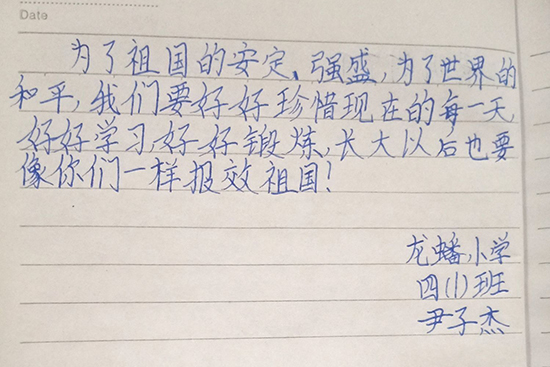 Date
为了祖国的安定、强盛,为了世界的
和平,我们要好好珍惜现在的每一天
好好学习,好好锻炼,长大以后也要
像你们一样报效祖国!
龙蟠小学
四(1)班
尹子杰